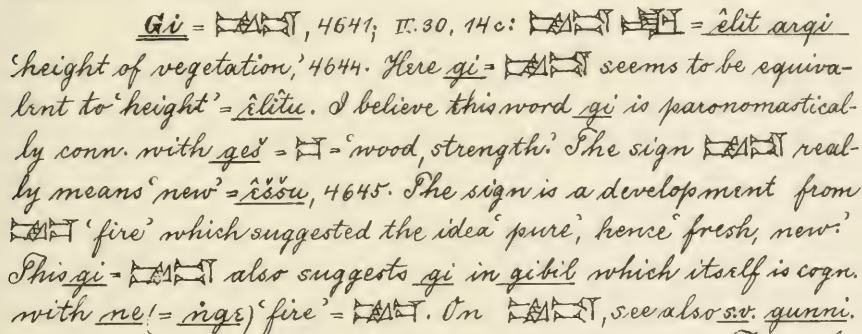 Gi = 𒉋, 4641; II. 30, 14c: 𒉋 𒊬 = êlit arqi
‘height of vegetation,’ 4644. Here gi = 𒉋 seems to be equiva-
lent to ‘height’ = êlîtu. I believe this word gi is paronomastical-
ly conn. with geš = 𒄑 = ‘wood, strength.’ The sign 𒉋 real-
ly means ‘new’ = êššu, 4645. The sign is a development from
𒉈 ‘fire’ which suggested the idea ‘pure’, hence ‘fresh, new.’
This gi = 𒉋 also suggests gi in gibil which itself is cogn.
with ne (= ṅge) ‘fire’ = 𒉈. On 𒉋, see also s.v. gunni.